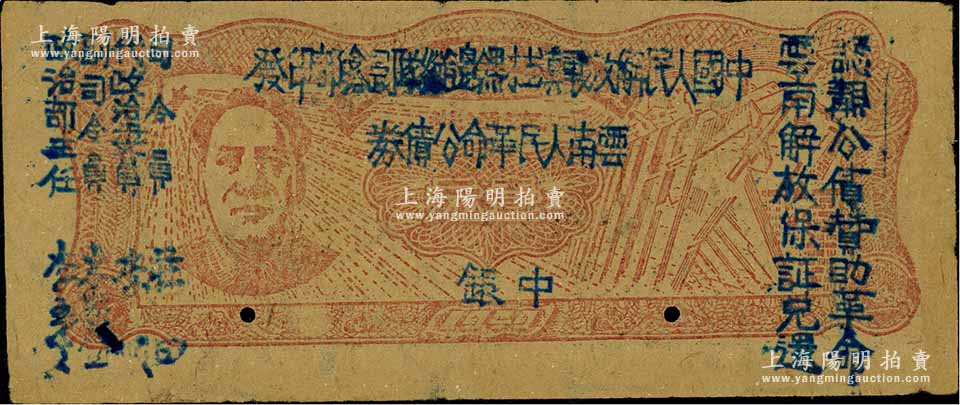 上海陽明拍賣
www.yangmingauction.com
認購公債贊助革命
雲南解放保証兌還
中國人民解放軍滇桂黔邊縱隊司令部印發
雲南人民革命公債券
上海陽明拍賣
www.yangmingauction.com
中 銀
司令員
政治委員
副司令員
政治部主任
1949
上海陽明拍賣
www.yangmingauction.com